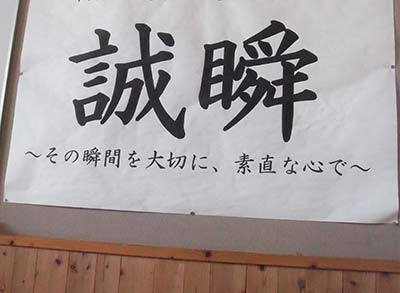 誠瞬
～その瞬間を大切に、素直な心で～